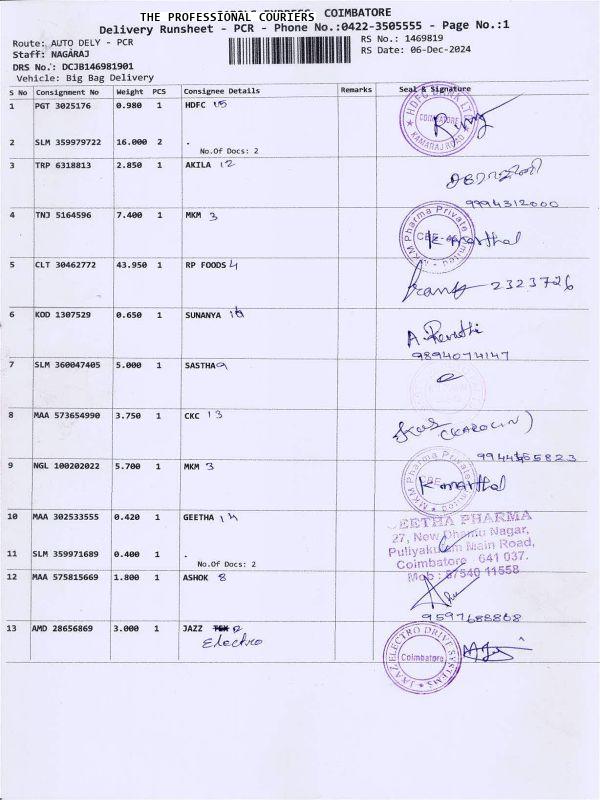 THE PROFESSIONAL COURIERS COIMBATORE
Delivery Runsheet - PCR - Phone No.:0422-3505555 - Page No.:1
Route: AUTO DELY - PCR
RS No.: 1469819
Staff: NAGARAJ
RS Date: 06-Dec-2024
DRS No.: DCJB146981901
Vehicle: Big Bag Delivery
S No Consignment No Weight PCS Consignee Details Remarks Seal & Signature
1 PGT 3025176 0.980 1 HDFC
COIMBATORE
KAMARAJ ROAD
2 SLM 359979722 16.000 2 .
No.Of Docs: 2
3 TRP 6318813 2.850 1 AKILA 12
9994312000
4 TNJ 5164596 7.400 1 MKM 3
MKM Pharma Private Limited
5 CLT 30462772 43.950 1 RP FOODS 4
2323726
6 KOD 1307529 0.650 1 SUNANYA
A. Revathi
9894074147
7 SLM 360047405 5.000 1 SASTHA 9
8 MAA 573654990 3.750 1 CKC 13
(KAROLIN)
9 NGL 100202022 5.700 1 MKM 3
MKM Pharma Private Limited
10 MAA 302533555 0.420 1 GEETHA
GEETHA PHARMA
27, New Dhamu Nagar,
Puliyakulam Main Road,
Coimbatore 641 037.
Mob : 87540 11558
11 SLM 359971689 0.400 1 .
No.Of Docs: 2
12 MAA 575815669 1.800 1 ASHOK 8
13 AMD 28656869 3.000 1 JAZZ
Electro
JAAZ ELECTRO DRIVE SYSTEMS
Coimbatore